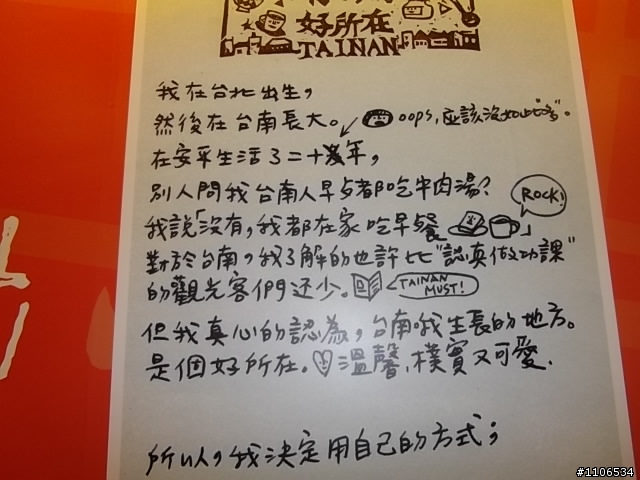 好所在
TAINAN
我在台北出生，
然後在台南長大。 oops,應該沒如此"老"。
在安平生活了二十幾年，
別人問我台南人早上都吃牛肉湯?
ROCK!
我說「沒有，我都在家吃早餐 」
對於台南，我了解的也許比"認真做功課"
的觀光客們还少。
TAINAN
MUST!
但我真心的認為，台南哦生長的地方。
是個好所在。溫馨,樸實又可愛.
所以，我決定用自己的方式；
#1106534